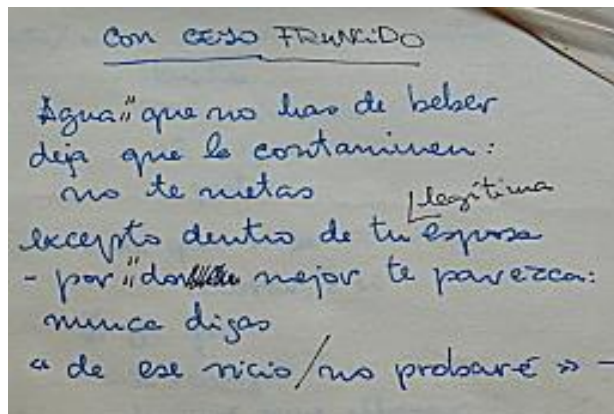 CON CEÑO FRUNCIDO
Agua" que no has de beber
deja que la contaminen:
no te metas
excepto dentro de tu legítima esposa
- por "donde mejor te parezca:
nunca digas
« de ese vicio/no probaré » -